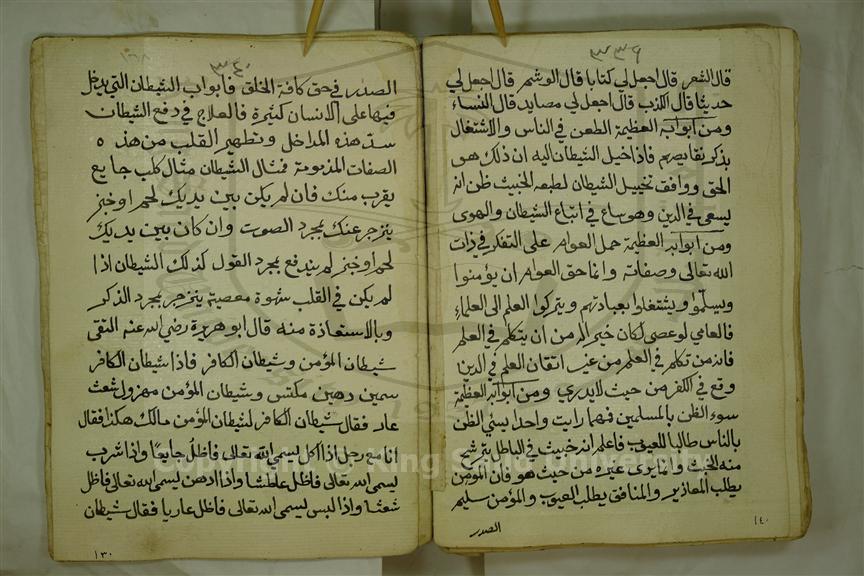 ٣٣٩
قال الشعر قال اجعل لي كتابا قال الوشم قال اجعل لي
حديثا قال الكذب قال اجعل لي مصايد قال النساء
ومن ابوابه العظيمة الطعن في الناس والاشتغال
بذكر نقايصهم فاذا خيل الشيطان اليه ان ذلك هو
الحق ووافق تخييل الشيطان لطبعه الخبيث ظن انه
يسعى في الدين وهو ساع في اتباع الشيطان والهوى
ومن ابوابه العظيمة حمل العوام على التفكر في ذات
الله تعالى وصفاته وانما حق العوام ان يؤمنوا
ويسلموا ويشتغلوا بعبادتهم ويتركوا العلم الى العلماء
فالعامي لو عصى لكان خير اله من ان يتكلم في العلم
فانه من تكلم في العلم من غير اتقان العلم في الدين
وقع في الكفر من حيث لا يدري ومن ابوابه العظيمة
سوء الظن بالمسلمين فمهما رايت واحدا يسئ الظن
بالناس طالبا للعيوب فاعلم انه خبيث في الباطن يترشح
منه الخبث وانما يرى غيره من حيث هو فان المؤمن
يطلب المعاذير والمنافق يطلب العيوب والمؤمن سليم
الصدر
١٤٠
٣٤٠
الصدر في حق كافة الخلق فابواب الشيطان التي يدخل
فيها على الانسان كثيرة فالعلاج في دفع الشيطان
سد هذه المداخل وتطهير القلب من هذه
الصفات المذمومة فمثال الشيطان مثال كلب جايع
يقرب منك فان لم يكن بين يديك لحم او خبز
ينزجر عنك بمجرد الصوت وان كان بين يديك
لحم او خبز لم يندفع بمجرد القول كذلك الشيطان اذا
لم يكن في القلب شهوة معصية ينزجر بمجرد الذكر
وبالاستعاذة منه قال ابو هريرة رضي الله عنه التقى
شيطان المؤمن وشيطان الكافر فاذا شيطان الكافر
سمين دهين مكتس وشيطان المؤمن مهزول شعث
عار فقال شيطان الكافر لشيطان المؤمن مالك هكذا فقال
انا مع رجل اذا اكل يسمي الله تعالى فاظل جايعا واذا شرب
يسمي الله تعالى فاظل عاطشا واذا ادهن يسمي الله تعالى فاظل
شعثا واذا لبس يسمي الله تعالى فاظل عاريا فقال شيطان
١٣٠
Copyright © King Saud University